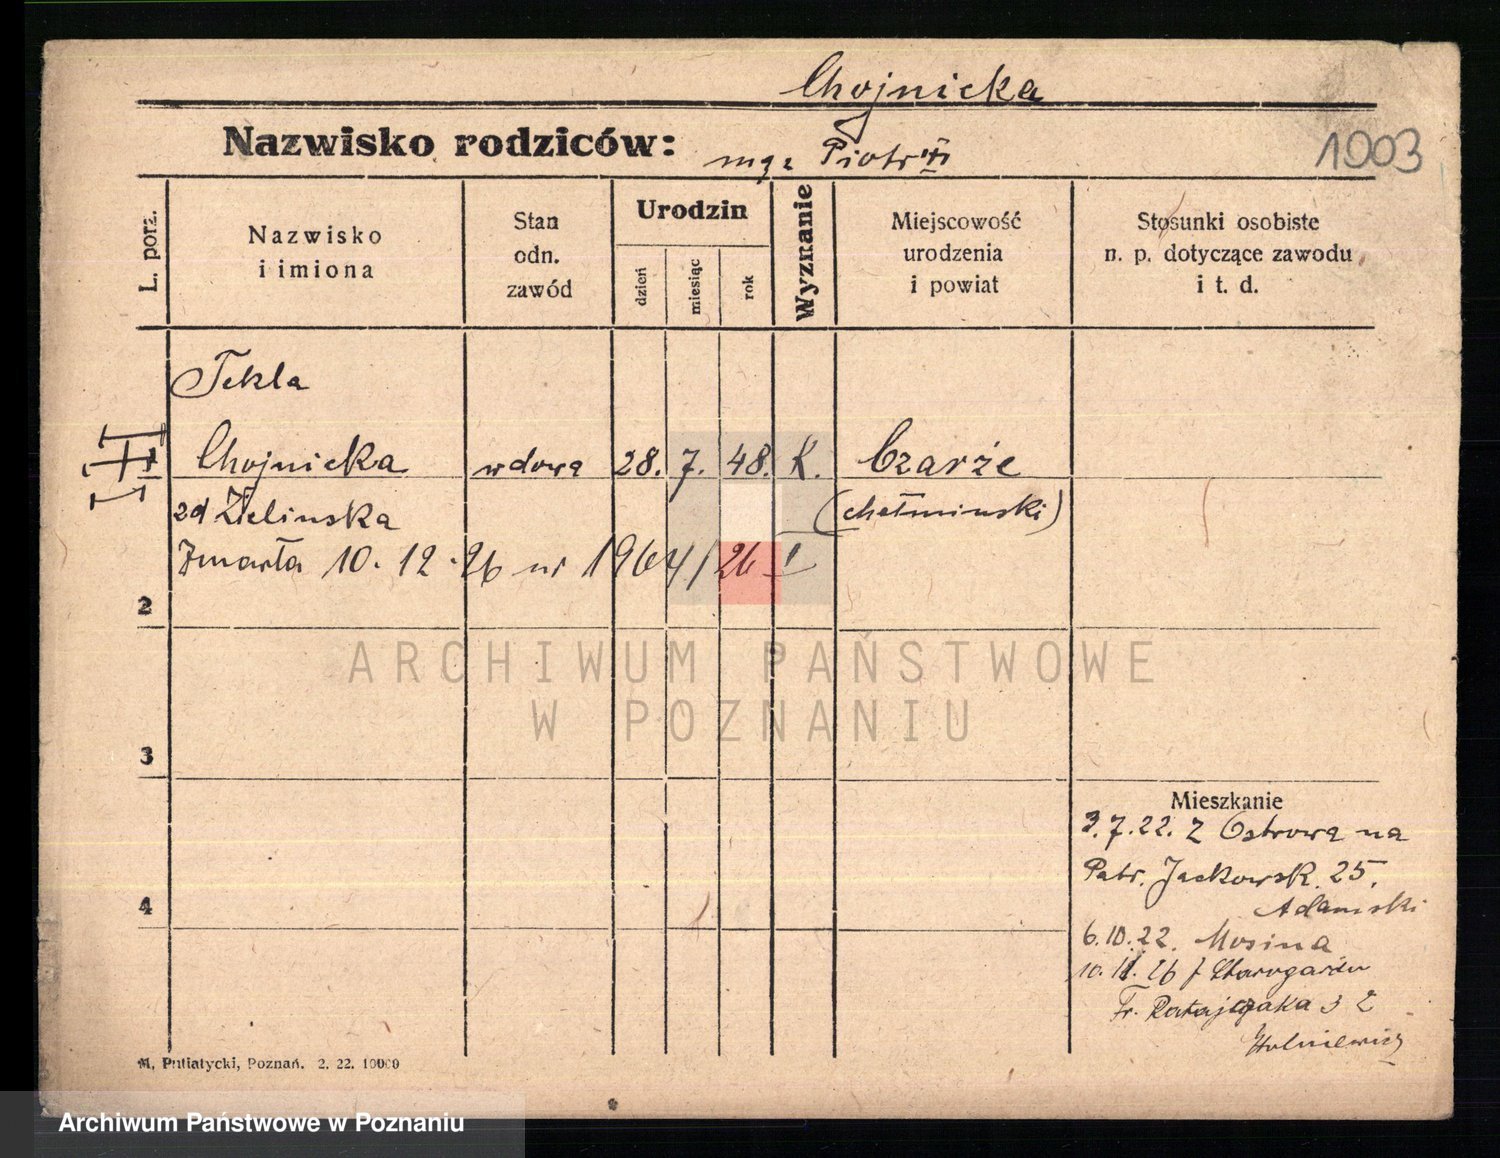 Chojnicka
Nazwisko rodziców: mąż Piotr
1003
L. porz.
Nazwisko
i imiona
Stan
odn.
zawód
Urodzin
dzień
miesiąc
rok
Wyznanie
Miejscowość
urodzenia
i powiat
Stosunki osobiste
n. p. dotyczące zawodu
i t. d.
Tekla
Chojnicka wdowa 28. 7. 48. K. Czarże
zd Zielinska (chełminski)
Zmarła 10. 12. 26 nr 1964/26 I
2
ARCHIWUM PAŃSTWOWE
W POZNANIU
3
4
Mieszkanie
3.7.22. Z Ostrowa na
Patr. Jackowsk. 25.
Adamski
6.10.22. Mosina
10. 11. 26 Starogardu
Fr. Ratajczaka 3
M. Putiatycki, Poznań. 2. 22. 10000
Archiwum Państwowe w Poznaniu